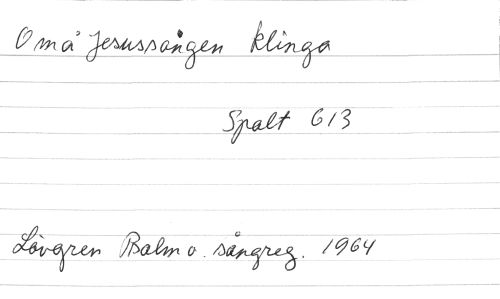 O må Jesussången klinga
Spalt 613
Lövgren Psalm o. sångreg. 1964